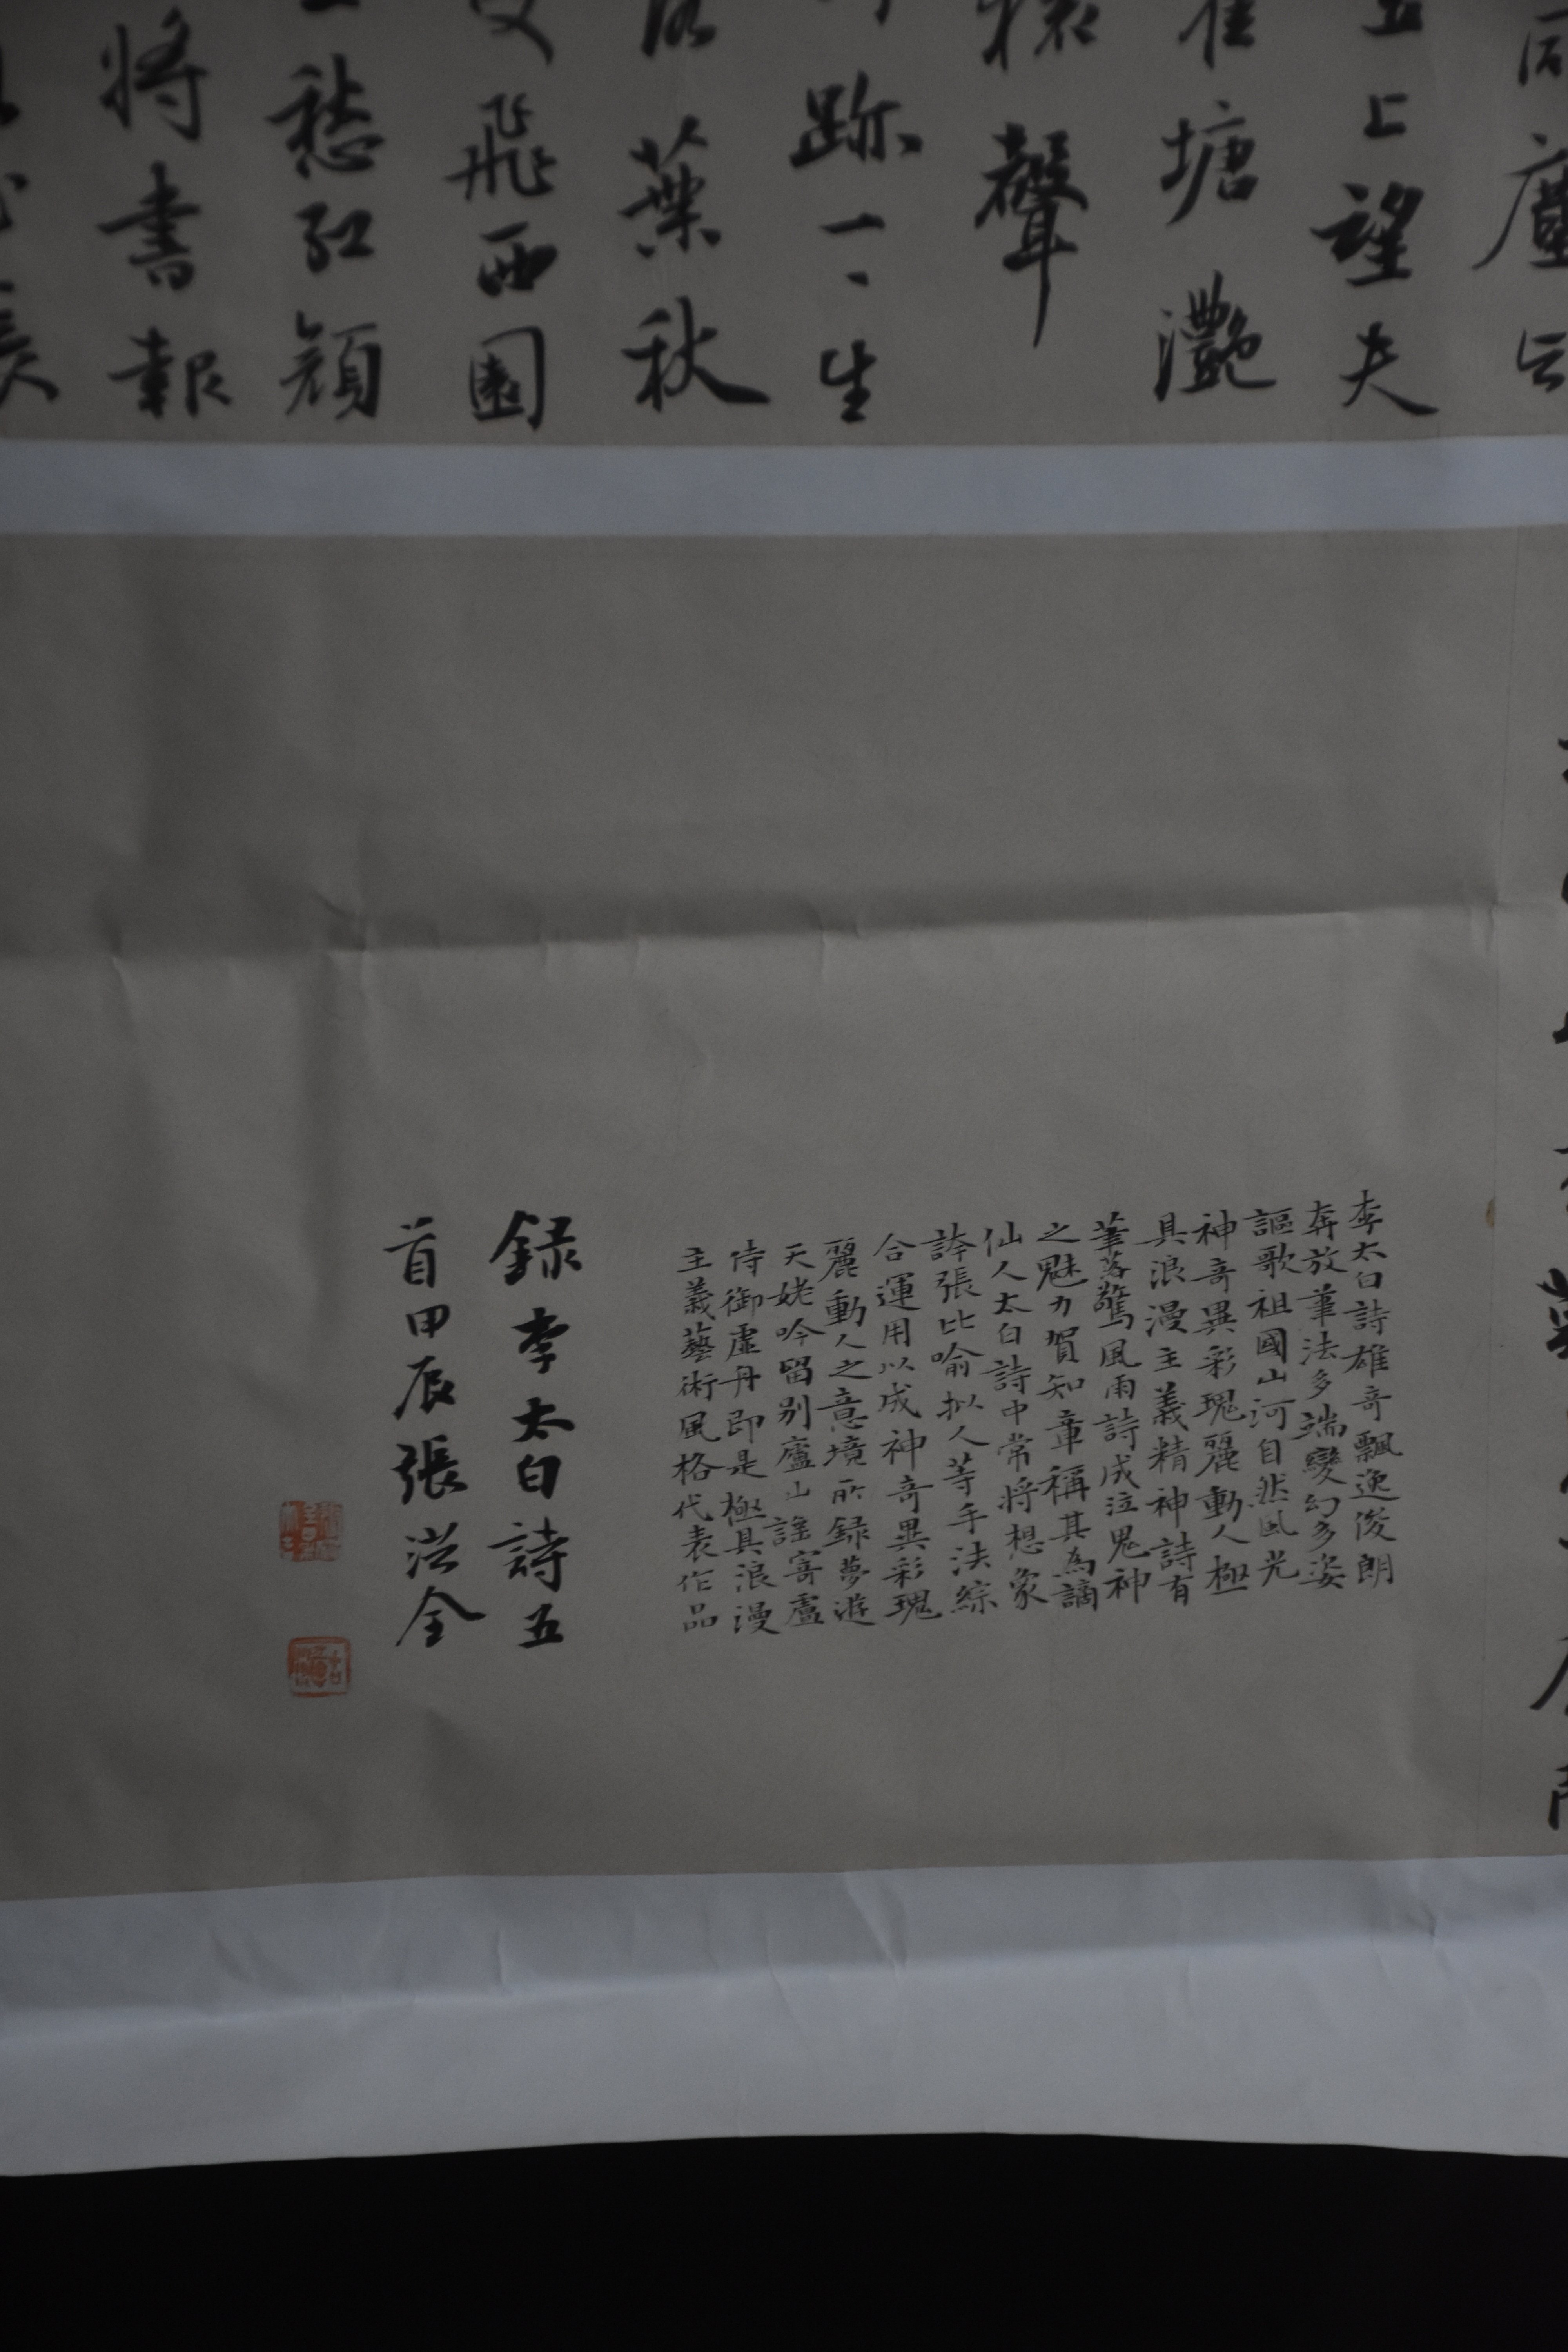 塵
五上望夫
塘灩
聲
跡一〻生
葉秋
飛西園
愁紅顏
將書報
李太白詩雄奇飄逸俊朗
奔放筆法多端變幻多姿
謳歌祖國山河自然風光
神奇異彩瑰麗動人極
具浪漫主義精神詩有
筆落驚風雨詩成泣鬼神
之魅力賀知章稱其為謫
仙人太白詩中常將想象
誇張比喻擬人等手法綜
合運用以成神奇異彩瑰
麗動人之意境所録夢遊
天姥吟留别廬山謠寄盧
侍御虛舟即是極具浪漫
主義藝術風格代表作品
録李太白詩五
首甲辰張洪全